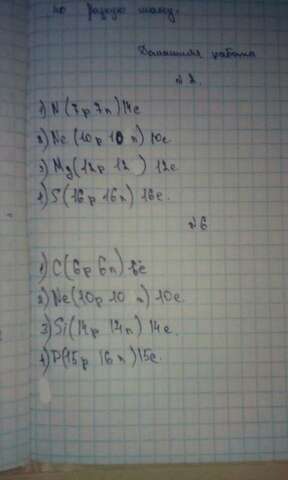 по разную
Домашняя работа
№ 2.
1) N (7p 7n) 14e
2) Ne (10p 10 n) 10e
3) Mg (12p 12 ) 12e
4) S (16p 16n) 16e
№6
1) C (6p 6n) 6e
2) Ne (10p 10 n) 10e.
3) Si (14p 14n) 14e.
4) P (15p 16n) 15e.